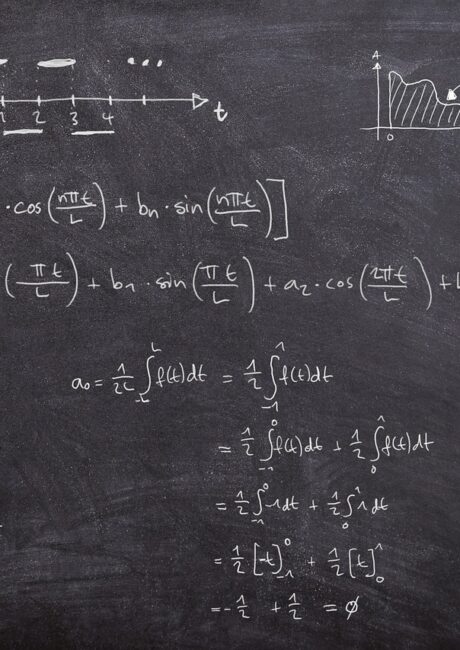 A
1 2 3 4 t
0
· cos(nπt/L) + bn · sin(nπt/L)]
(πt/L) + b1 · sin(πt/L) + a2 · cos(2πt/L) +
a0 = 1/2L ∫_{-L}^{L} f(t)dt = 1/2 ∫_{-1}^{1} f(t)dt
= 1/2 ∫_{-1}^{0} f(t)dt + 1/2 ∫_{0}^{1} f(t)dt
= 1/2 ∫_{-1}^{0} -1dt + 1/2 ∫_{0}^{1} 1dt
= 1/2 [-t]_{-1}^{0} + 1/2 [t]_{0}^{1}
= -1/2 + 1/2 = ∅